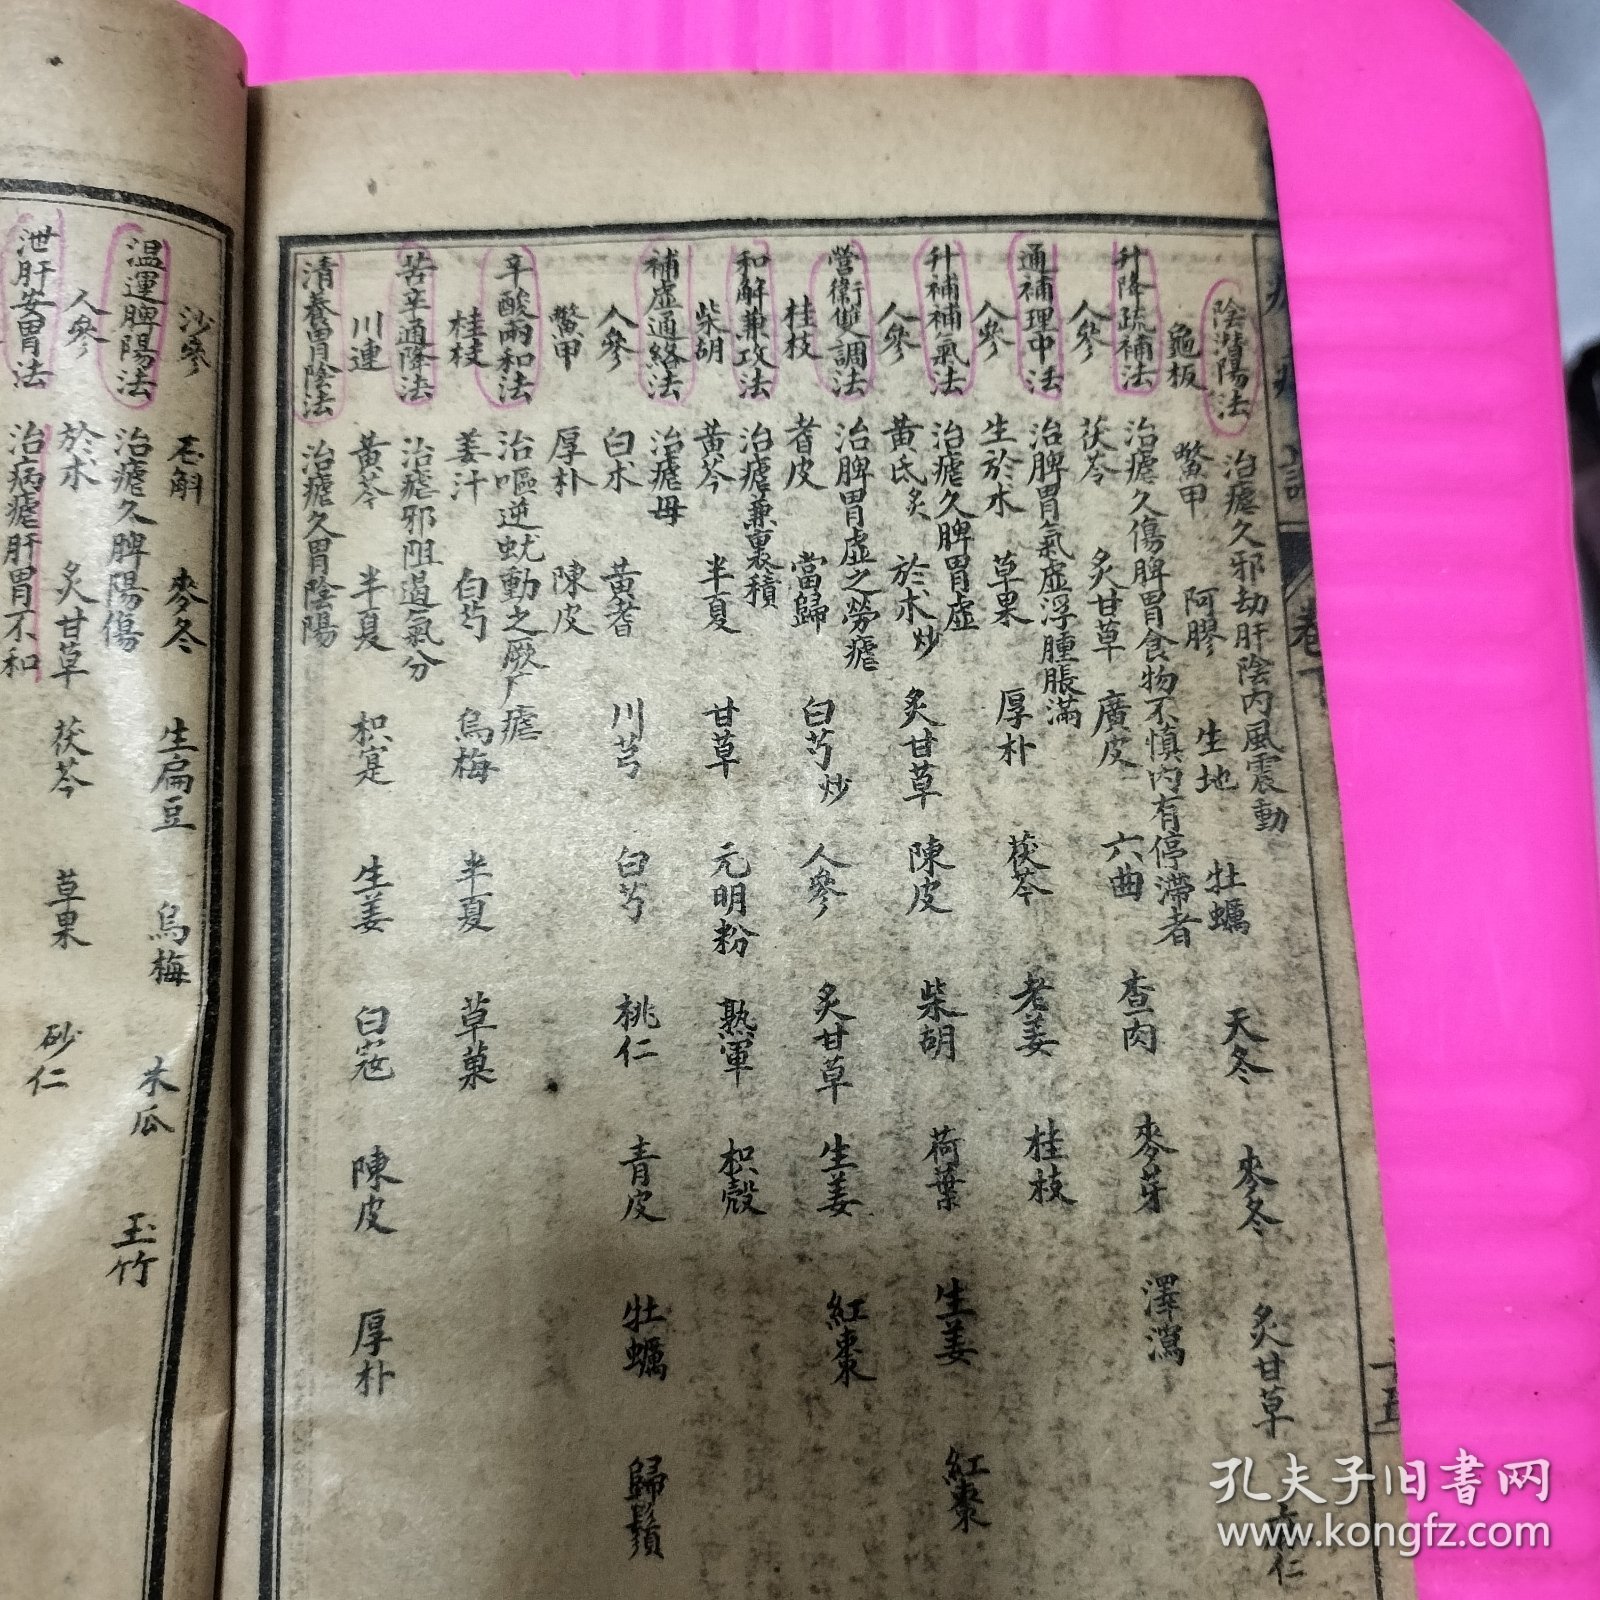 陰潛陽法　治瘧久邪劫肝陰內風震動
龜板　鱉甲　阿膠　生地　牡蠣　天冬　麥冬　炙甘草　仁
升降疏補法　治瘧久傷脾胃食物不慎內有停滯者
人參　茯苓　炙甘草　廣皮　六曲　查肉　麥芽　澤瀉
通補理中法　治脾胃氣虛浮腫脹滿
人參　生於术　草果　厚朴　茯苓　老姜　桂枝
升補補氣法　治瘧久脾胃虛
人參　黃芪炙　於术炒　炙甘草　陳皮　柴胡　荷葉　生姜　紅棗
營衛雙調法　治脾胃虛之勞瘧
桂枝　耆皮　當歸　白芍炒　人參　炙甘草　生姜　紅棗
和解兼攻法　治瘧兼裏積
柴胡　黃芩　半夏　甘草　元明粉　熟軍　枳殼
補虛通絡法　治瘧母
人參　白术　黃耆　川芎　白芍　桃仁　青皮　牡蠣　歸鬚
鱉甲　厚朴　陳皮
辛酸兩和法　治嘔逆蚘動之厥厂瘧
桂枝　姜汁　白芍　烏梅　半夏　草菓
苦辛通降法　治瘧邪阻遏氣分
川連　黃芩　半夏　枳寔　生姜　白蔻　陳皮　厚朴
清養胃陰法　治瘧久胃陰陽
沙參　石斛　麥冬　生扁豆　烏梅　木瓜　玉竹
温運脾陽法　治瘧久脾陽傷
人參　於术　炙甘草　茯苓　草果　砂仁
泄肝安胃法　治病瘧肝胃不和
卷下
孔夫子旧书网
www.kongfz.com